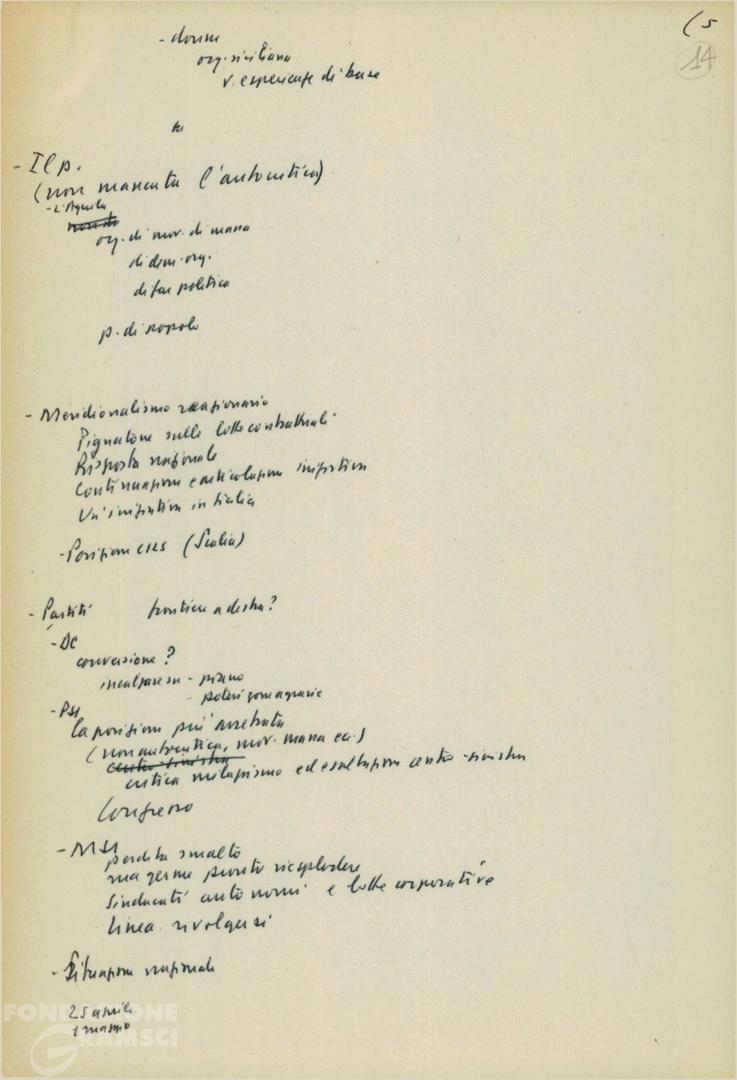 (5
14
- donne
org. siciliana
v. esperienze di base
- Il p.
(non mancata l'autocritica)
- L'Aquila
org. di mov. di massa
di dem. org.
di far politica
p. di popolo
- Meridionalismo reazionario
Pignatone sulle lotte contrattuali
Risposta nazionale
Continuazione e articolazione iniziativa
Un'iniziativa in Sicilia
- Posizione CISL (Scalia)
- Partiti frontiera a destra?
- DC
conversione?
incalzare su - piano
- poteri zone agrarie
- PSI
la posizione più arretrata
(non autocritica, mov. massa ecc.)
centro-sinistra
critica ed esaltazione centro-sinistra
Congresso
- MSI
perdita smalto
ma germe pronto riesplodere
sindacati autonomi e lotte corporative
linea: rivolgersi
- Situazione nazionale
25 aprile
1 maggio
FONDAZIONE
GRAMSCI